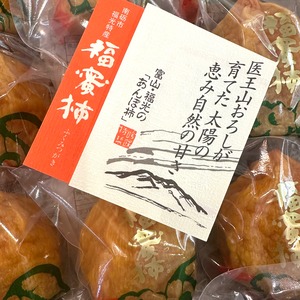 南砺市
福光特産
福蜜柿
ふくみつがき
医王山おろしが
育てた 太陽の
恵み自然の甘さ
富山・福光の
「あんぽ柿」